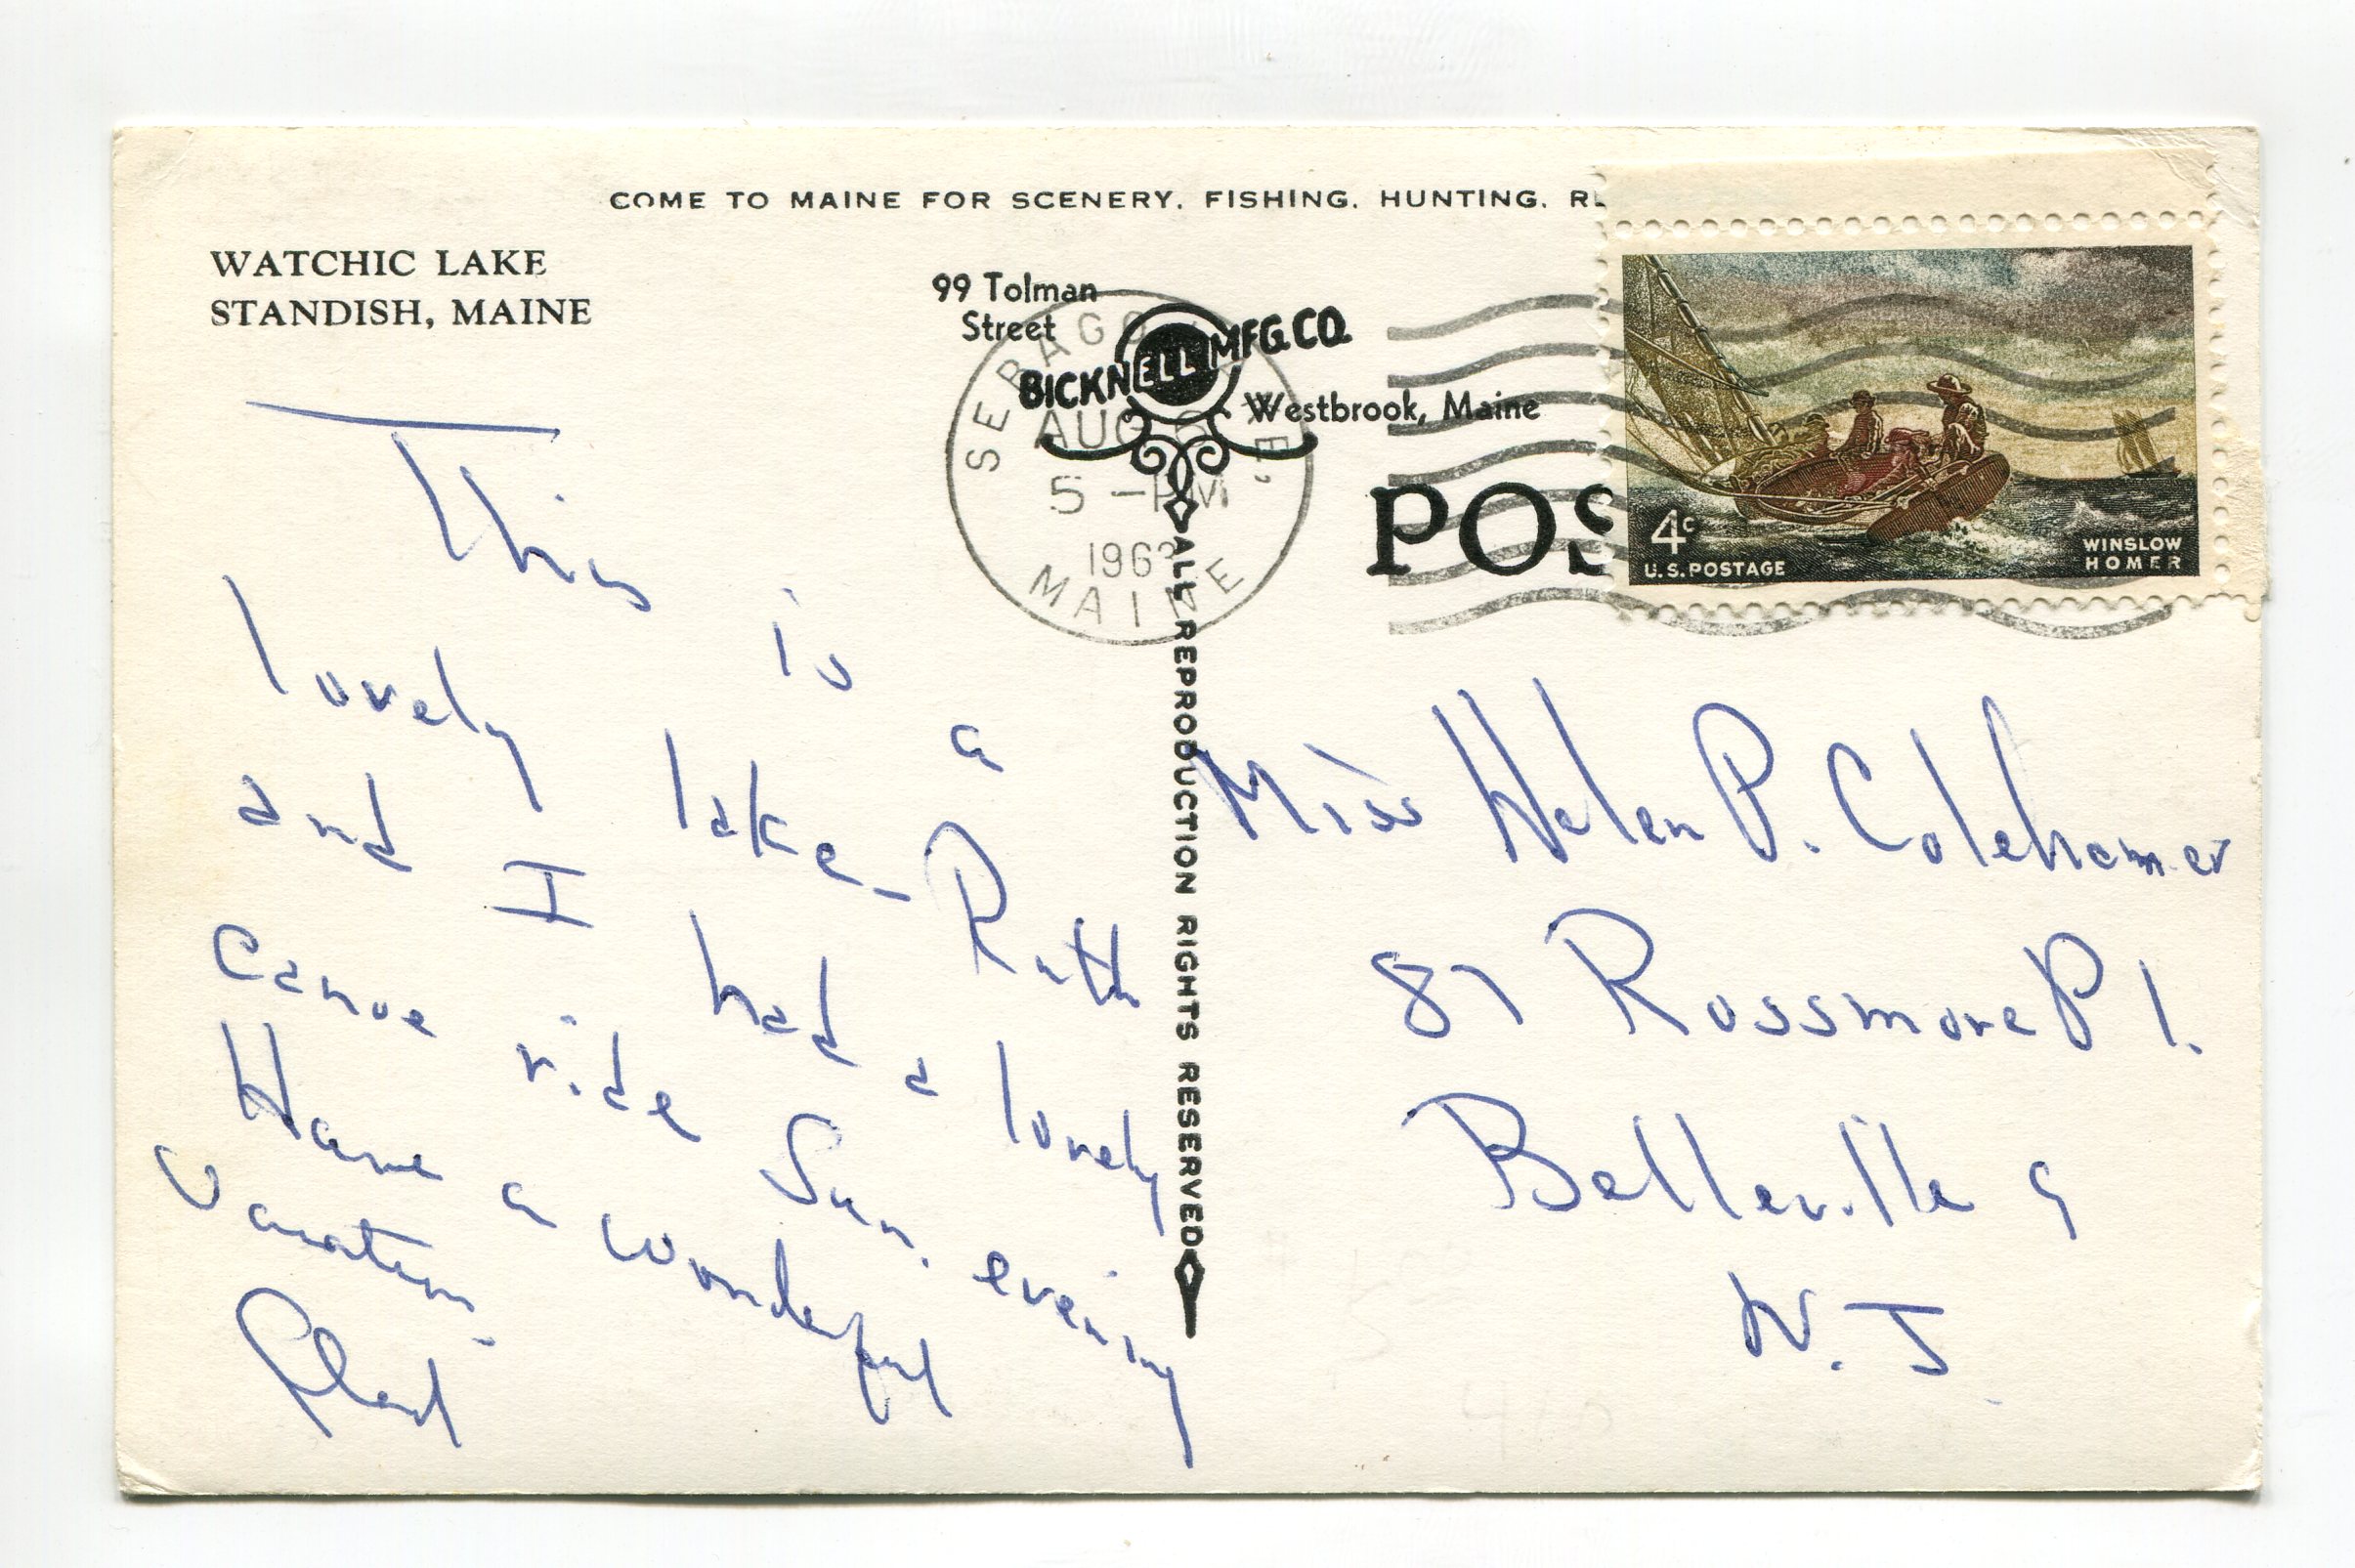 COME TO MAINE FOR SCENERY, FISHING, HUNTING, RE
WATCHIC LAKE
STANDISH, MAINE
99 Tolman
Street
BICKNELL MFG. CO.
Westbrook, Maine
SEBAGO LAKE
AUG
5 - PM
196
MAINE
POS
4c
U.S. POSTAGE
WINSLOW
HOMER
ALL REPRODUCTION RIGHTS RESERVED
This is a
lovely lake - Ruth
and I had a lovely
canoe ride Sun. evening
Have a wonderful
vacation.
Miss Helen P. Colehamer
87 Rossmore Pl.
Belleville 9
N. J.